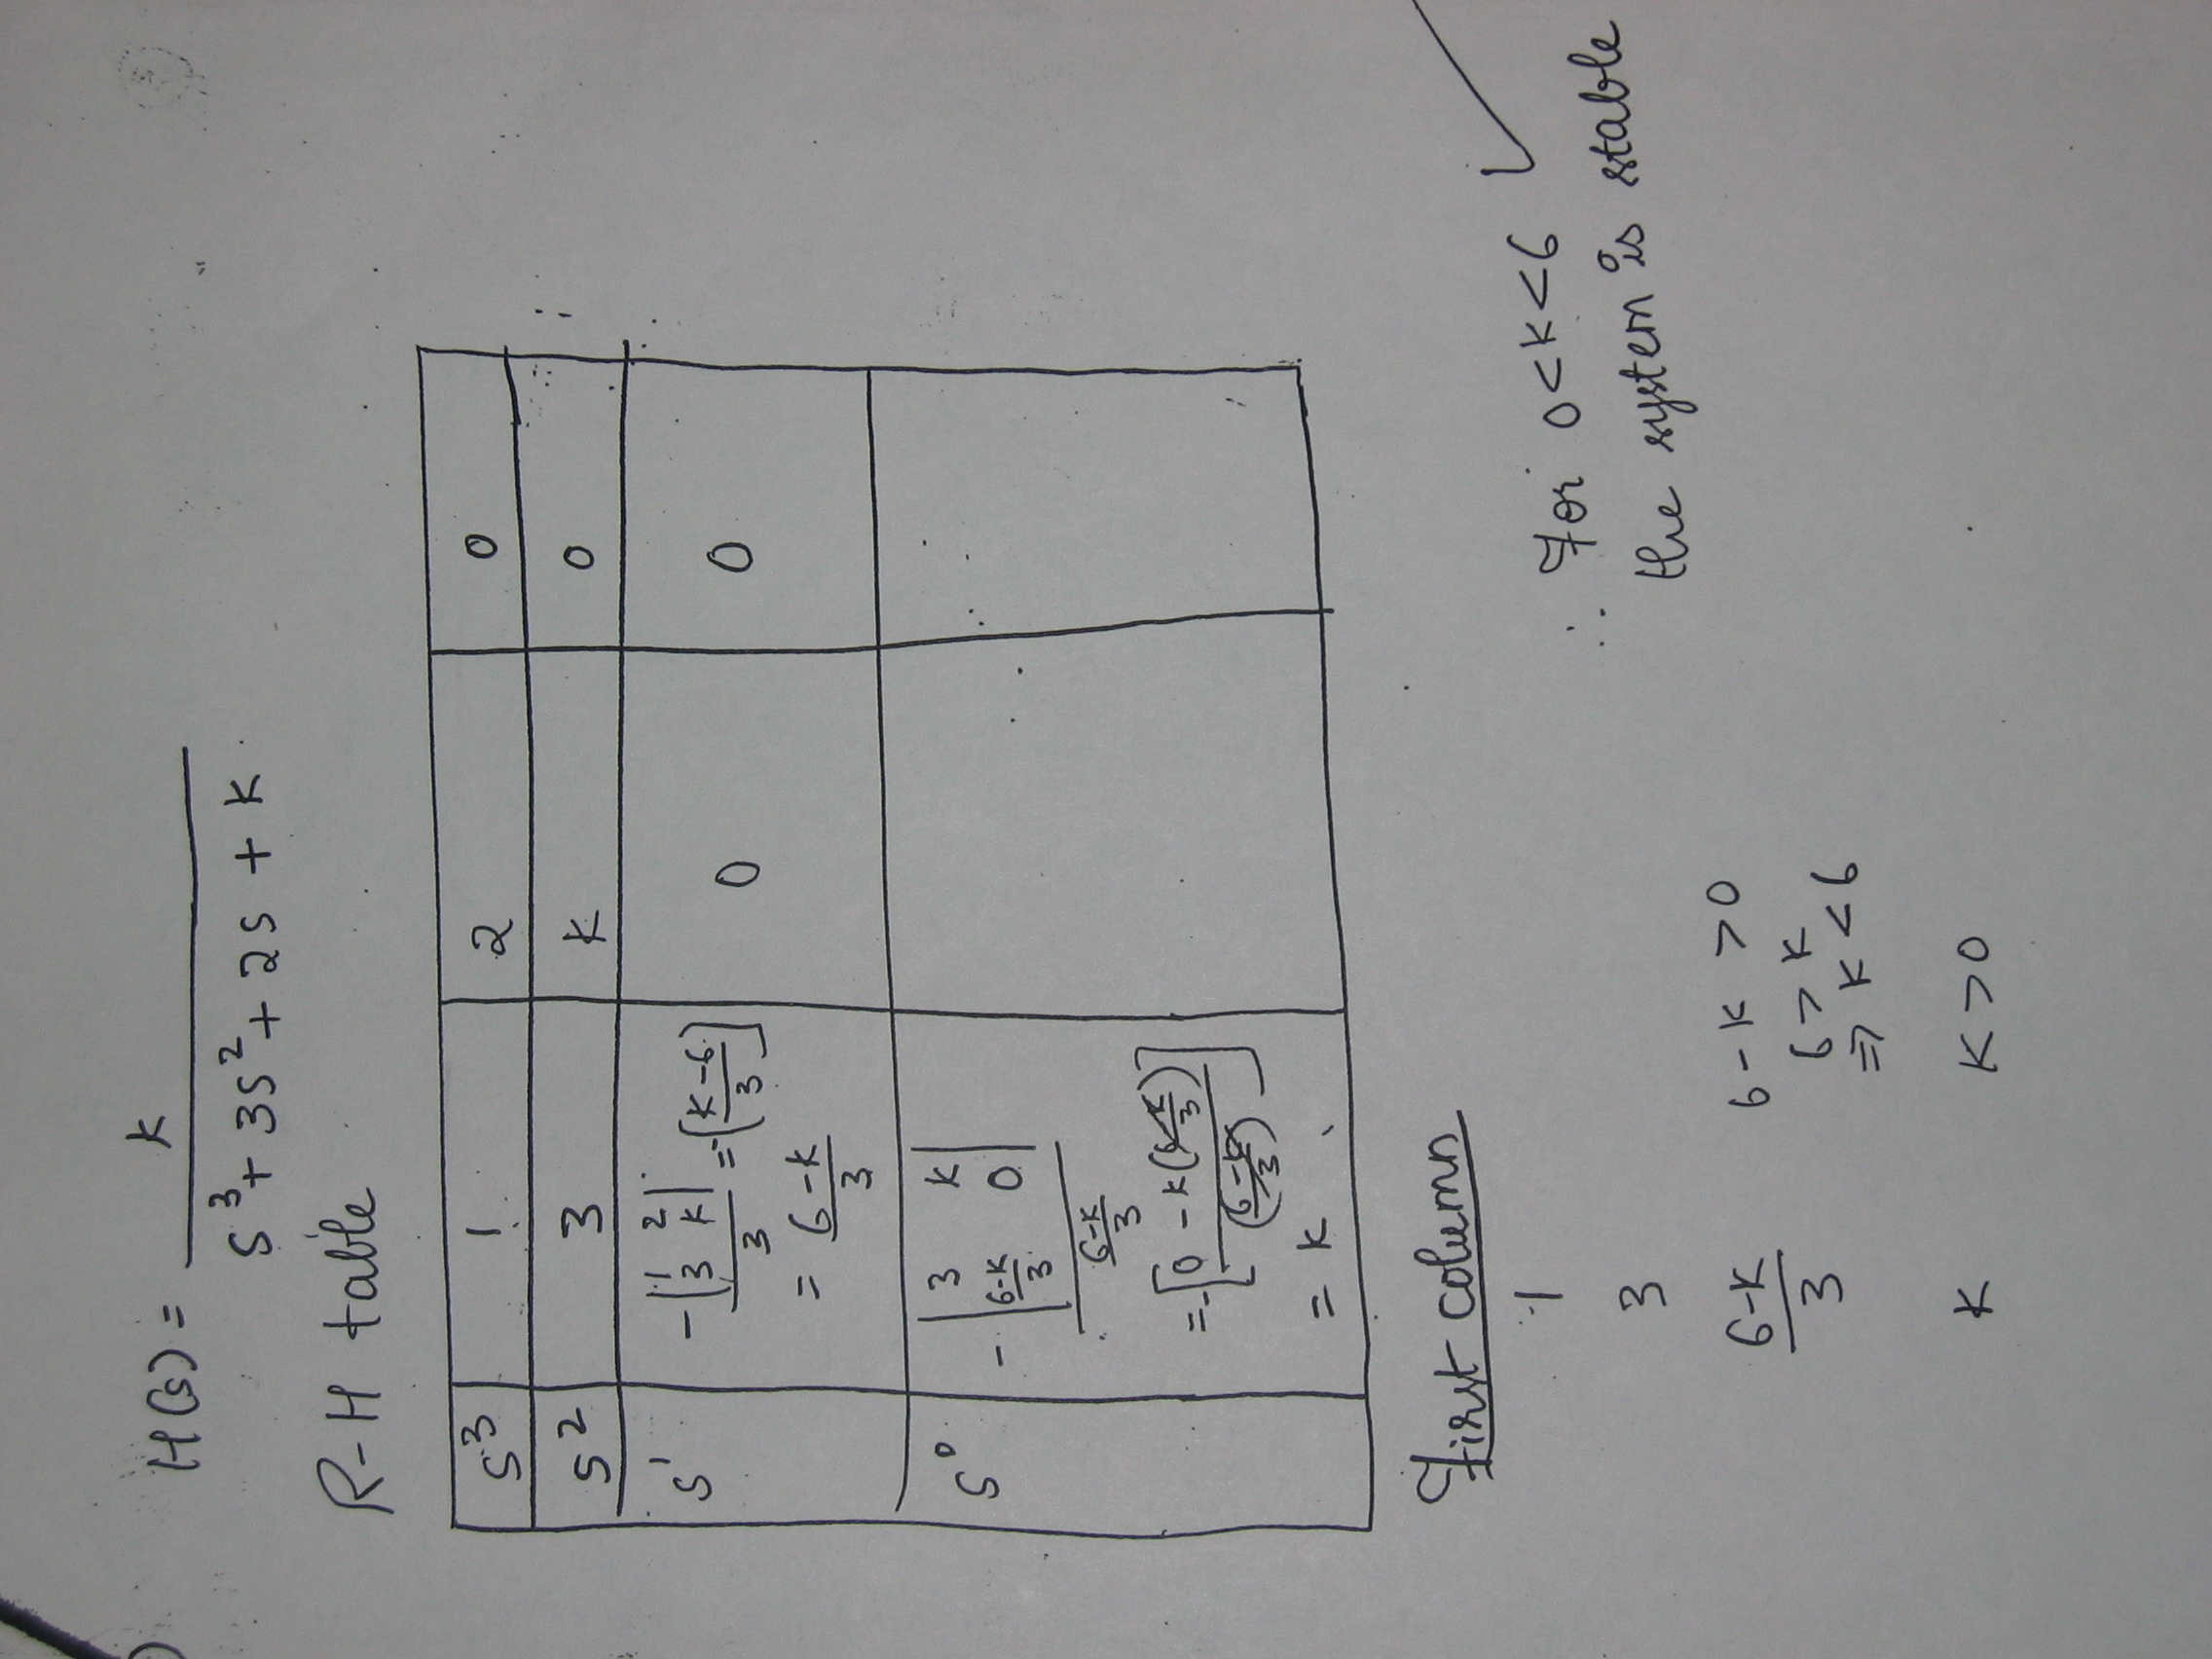 H(s) = K / (S³ + 3S² + 2S + K)
R-H table
S³ | 1 | 2 | 0
S² | 3 | K | 0
S¹ | -|1 2; 3 K| / 3 = -[(K-6)/3] | 0 | 0
= (6-K)/3
S⁰ | -|3 K; (6-K)/3 0| / ((6-K)/3)
= -[0 - K((6-K)/3) / ((6-K)/3)]
= K
First column
1
3
(6-K)/3   6-K > 0
6 > K
⇒ K < 6
K   K > 0
∴ For 0 < K < 6
the system is stable